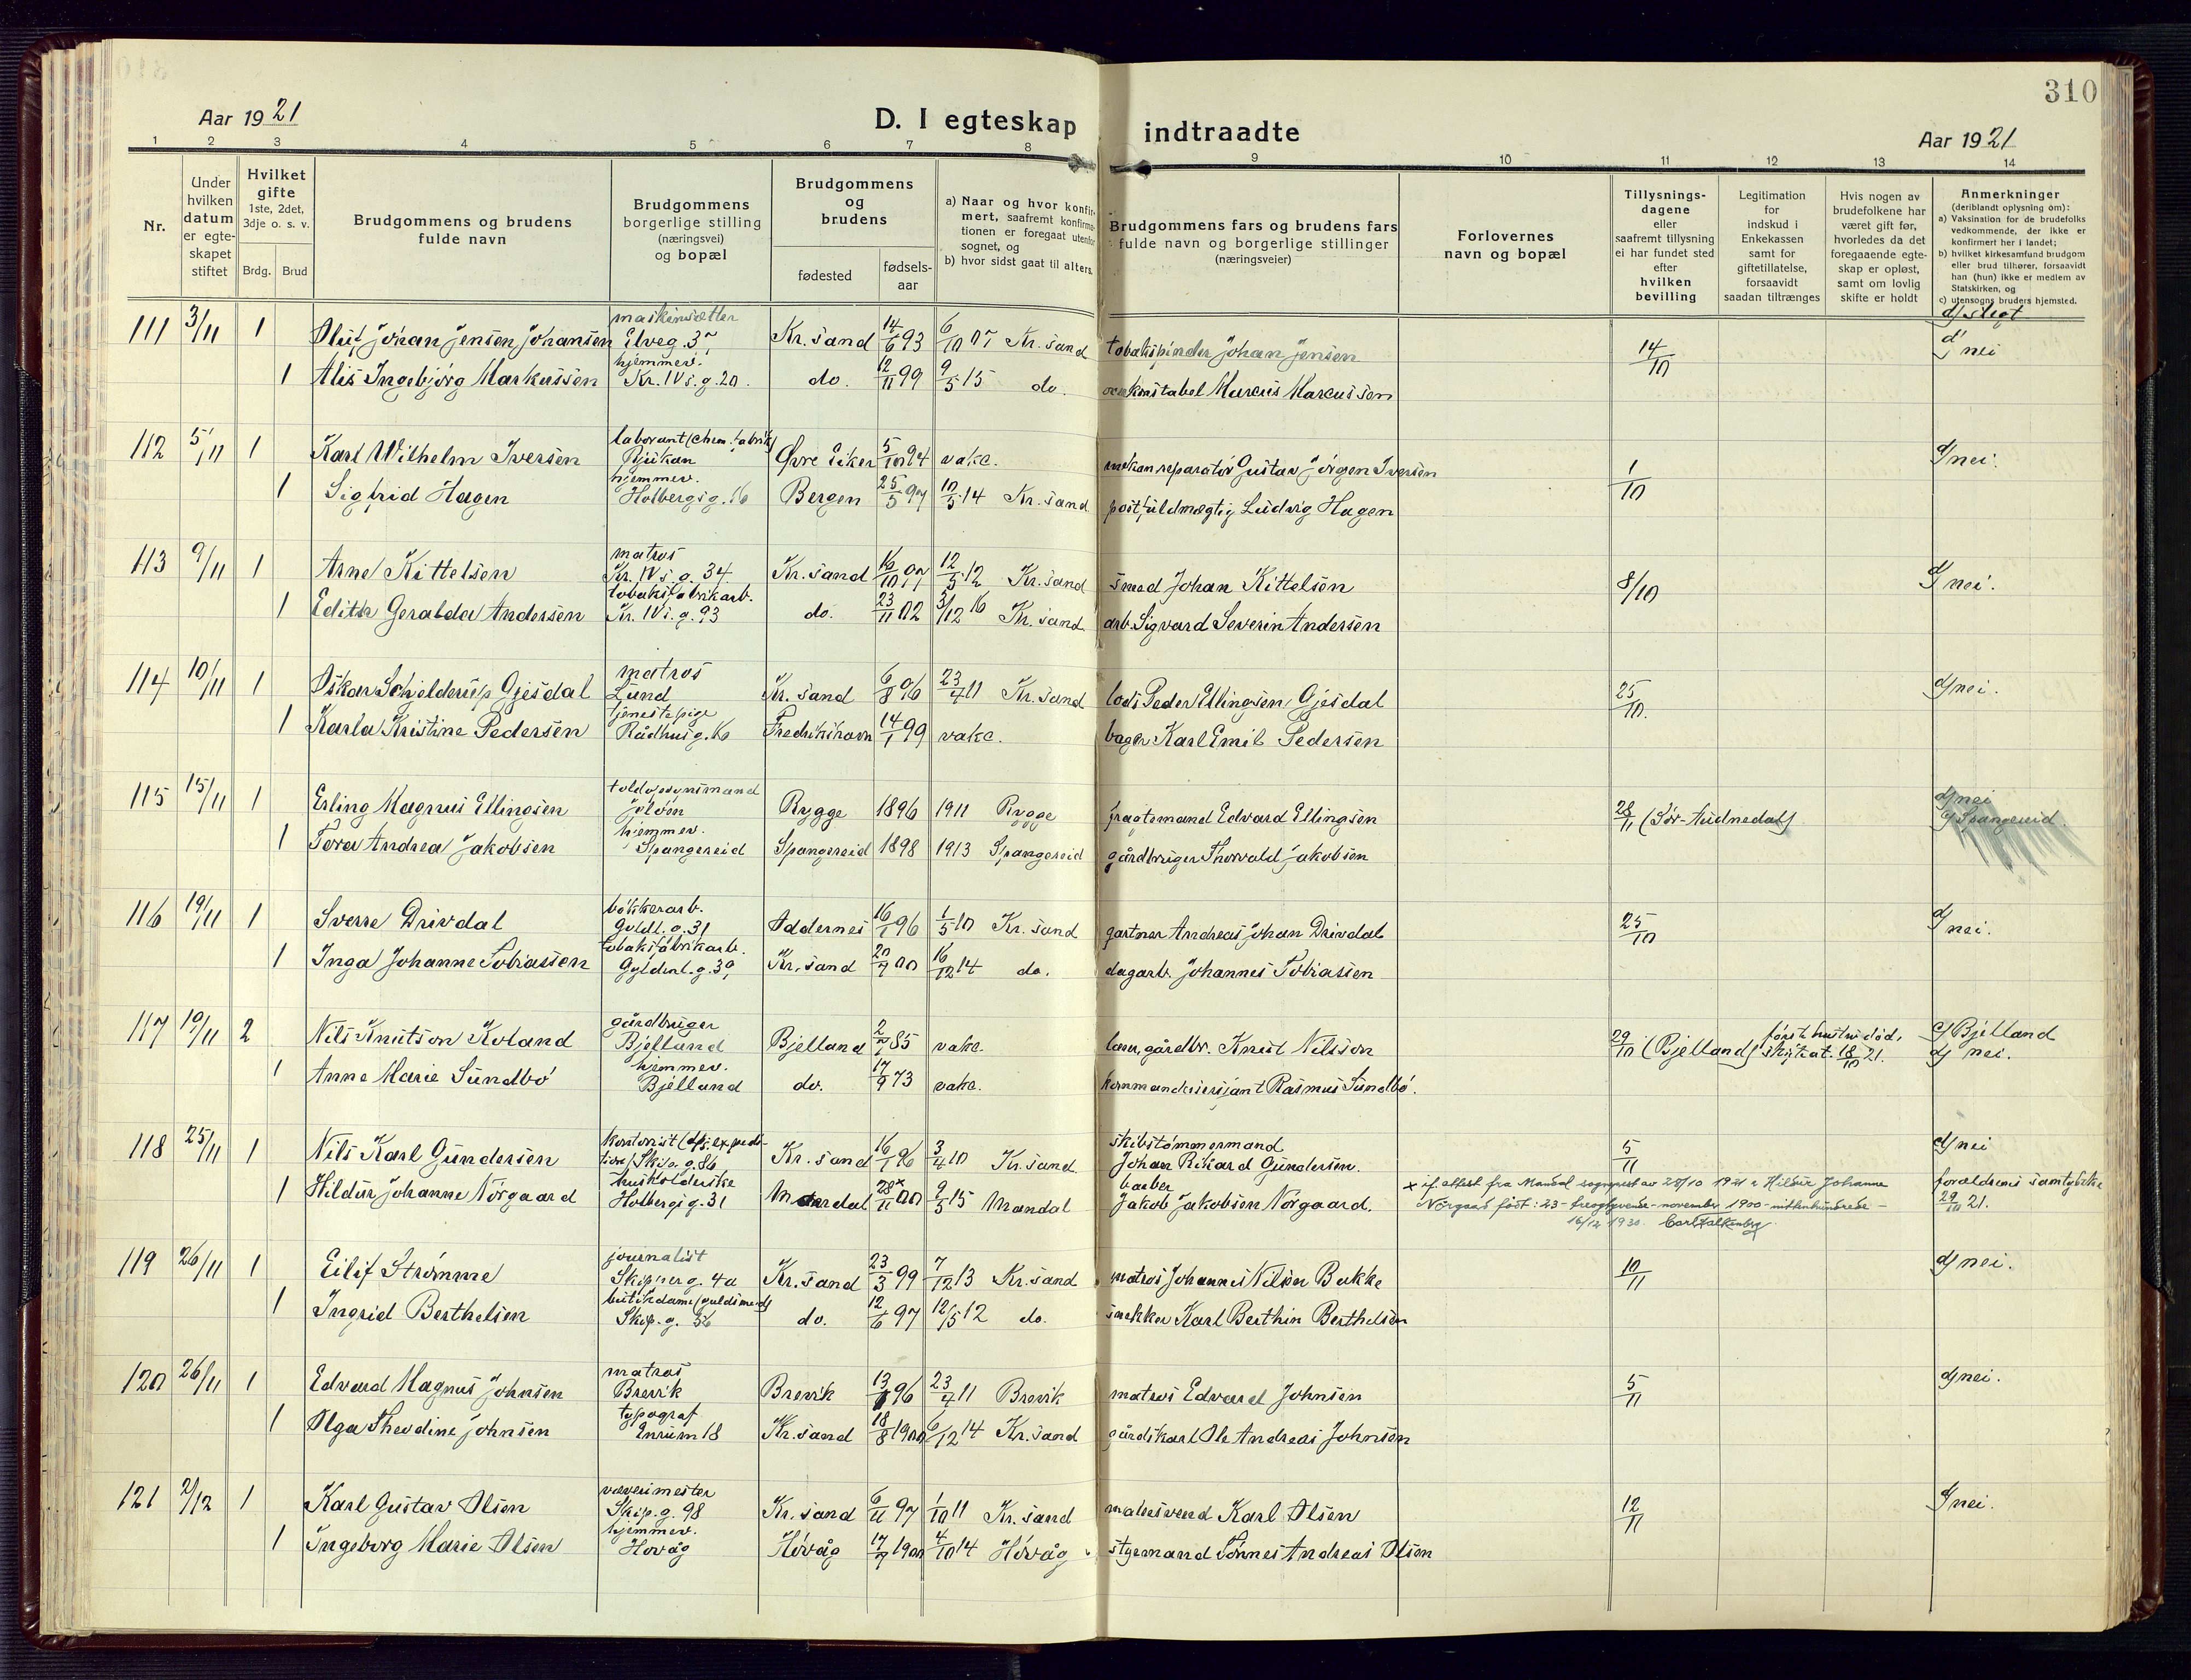 310
Aar 1921
D. I egteskap indtraadte
Aar 1921
1 2 3 4 5 6 7 8 9 10 11 12 13 14
Nr.
Under hvilken datum er egte- skapet stiftet
Hvilket gifte 1ste, 2det, 3dje o. s. v.
Brdg. Brud
Brudgommens og brudens fulde navn
Brudgommens borgerlige stilling (næringsvei) og bopæl
Brudgommens og brudens
fødested
fødsels- aar
a) Naar og hvor konfir- mert, saafremt konfirma- tionen er foregaat utenfor sognet, og b) hvor sidst gaat til alters.
Brudgommens fars og brudens fars fulde navn og borgerlige stillinger (næringsveier)
Forlovernes navn og bopæl
Tillysnings- dagene eller saafremt tillysning ei har fundet sted efter hvilken bevilling
Legitimation for indskud i Enkekassen samt for giftetillatelse, forsaavidt saadan tiltrænges
Hvis nogen av brudefolkene har været gift før, hvorledes da det foregaaende egte- skap er opløst, samt om lovlig skifte er holdt
Anmerkninger (deriblandt oplysning om): a) Vaksination for de brudefolks vedkommende, der ikke er konfirmert her i landet; b) hvilket kirkesamfund brudgom eller brud tilhører, forsaavidt han (hun) ikke er medlem av Statskirken, og c) utensogns bruders hjemsted.
d) slegt
maskinsætter
111 3/11 1 Oluf Johan Jensen Johansen Elveg. 37 Kr.sand 14/6 93 6/10 07 Kr.sand tobakspinder Johan Jensen 14/10 d) nei
hjemmev.
1 Alis Ingebjørg Markussen Kr. IVs.g. 20. do. 12/11 99 9/5 15 do. Marcus Marcussen
laborant (chem. fabrik)
112 5/11 1 Karl Wilhelm Iversen Rjukan Øvre Eiker 5/10 94 vakc. mekan.reparatør Gustav Jørgen Iversen 1/10 d) nei.
hjemmev.
1 Sigfrid Hagen Holbergsg. 16 Bergen 25/5 97 10/5 14 Kr.sand postfuldmægtig Ludvig Hagen
matros
113 9/11 1 Arne Kittelsen Kr. IVs.g. 34 Kr.sand 16/10 97 12/5 12 Kr.sand smed Johan Kittelsen 8/10 d) nei.
tobaksfabrikarb.
1 Edith Geralda Andersen Kr. IVs.g. 93 do. 23/11 02 3/12 16 Kr.sand. arb. Sigvard Severin Andersen
matros
114 10/11 1 Oskar Schjelderup Gjesdal Lund Kr.sand 6/8 96 23/4 11 Kr.sand lods Peder Ellingsen Gjesdal 25/10. d) nei.
tjenestepige
1 Karla Kristine Pedersen Rådhusg. 16 Fredrikshavn 14/1 99 vakc. bager Karl Emil Pedersen
toldopsynsmand
115 15/11 1 Erling Magnus Ellingsen Jeløen Rygge 1896 1911 Rygge fragtemand Edvard Ellingsen 28/11 (Sør-Audnedal) d) nei
c) Spangereid.
hjemmev.
1 Tora Andrea Jakobsen Spangereid Spangereid 1898 1913 Spangereid gårdbruger Thorvald Jakobsen
bøkkerarb.
116 19/11 1 Sverre Drivdal Gyldl.g. 31 Oddernes 16/1 96 1/5 10 Kr.sand gartner Andreas Johan Drivdal 25/10 d) nei.
tobaksfabrikarb.
1 Inga Johanne Tobiassen Gyldenl.g. 39 Kr.sand 20/7 00 16/12 14 do. dagarb. Johannes Tobiassen
gårdbruger
117 19/11 2 Nils Knutson Roland Bjelland Bjelland 2/7 85 vakc. gårdbr. Knut Nilsson 29/10 (Bjelland) første hustru død, skifteat. 18/10 21. c) Bjelland
d) nei.
hjemmev.
1 Anne Marie Sundbø Bjelland do. 17/9 73 vakc. kommandersersjant Rasmus Sundbø.
kontorist (dps.expedi- skibstømmermand
118 25/11 1 Nils Karl Gundersen tion) Skip.g. 86 Kr.sand 16/1 96 3/4 10 Kr.sand. Johan Rikard Gundersen. 5/11 d) nei
husholderske barber
1 Hildur Johanne Nørgaard Holbergsg. 31 Mandal 28/11 x 00 9/5 15 Mandal Jakob Jakobsen Nørgaard. forældrenes samtykke 29/10 21.
x if. attest fra Mandal sogneprest av 28/10 1921 er Hildur Johanne
Nørgaard født: 23 - treogtyvende - november 1900 - nittenhundrede -
16/12 1930. Carl Falkenberg
journalist
119 26/11 1 Eilif Strømme Skipperg. 4a Kr.sand 23/3 99 7/12 13 Kr.sand matros Johannes Nilsen Bukke 10/11 d) nei.
butikdame (guldsmed)
1 Ingrid Berthelsen Skip.g. 56 do. 12/6 97 12/5 12 do. snekker Karl Berthin Berthelsen
matros
120 26/11 1 Edvard Magnus Johnsen Brevik Brevik 13/8 96 23/4 11 Brevik matros Edvard Johnsen 5/11 d) nei.
typograf
1 Olga Theodine Johnsen Enrum 18 Kr.sand 18/8 1900 6/12 14 Kr.sand gårdskarl Ole Andreas Johnsen
væverimester
121 2/12 1 Karl Gustav Olsen Skip.g. 98 Kr.sand 6/11 97 1/10 11 Kr.sand malersvend Karl Olsen 12/11 d) nei.
hjemmev.
1 Ingeborg Marie Olsen Høvåg Høvåg 17/7 1900 4/10 14 Høvåg styrmand Tønnes Andreas Olsen